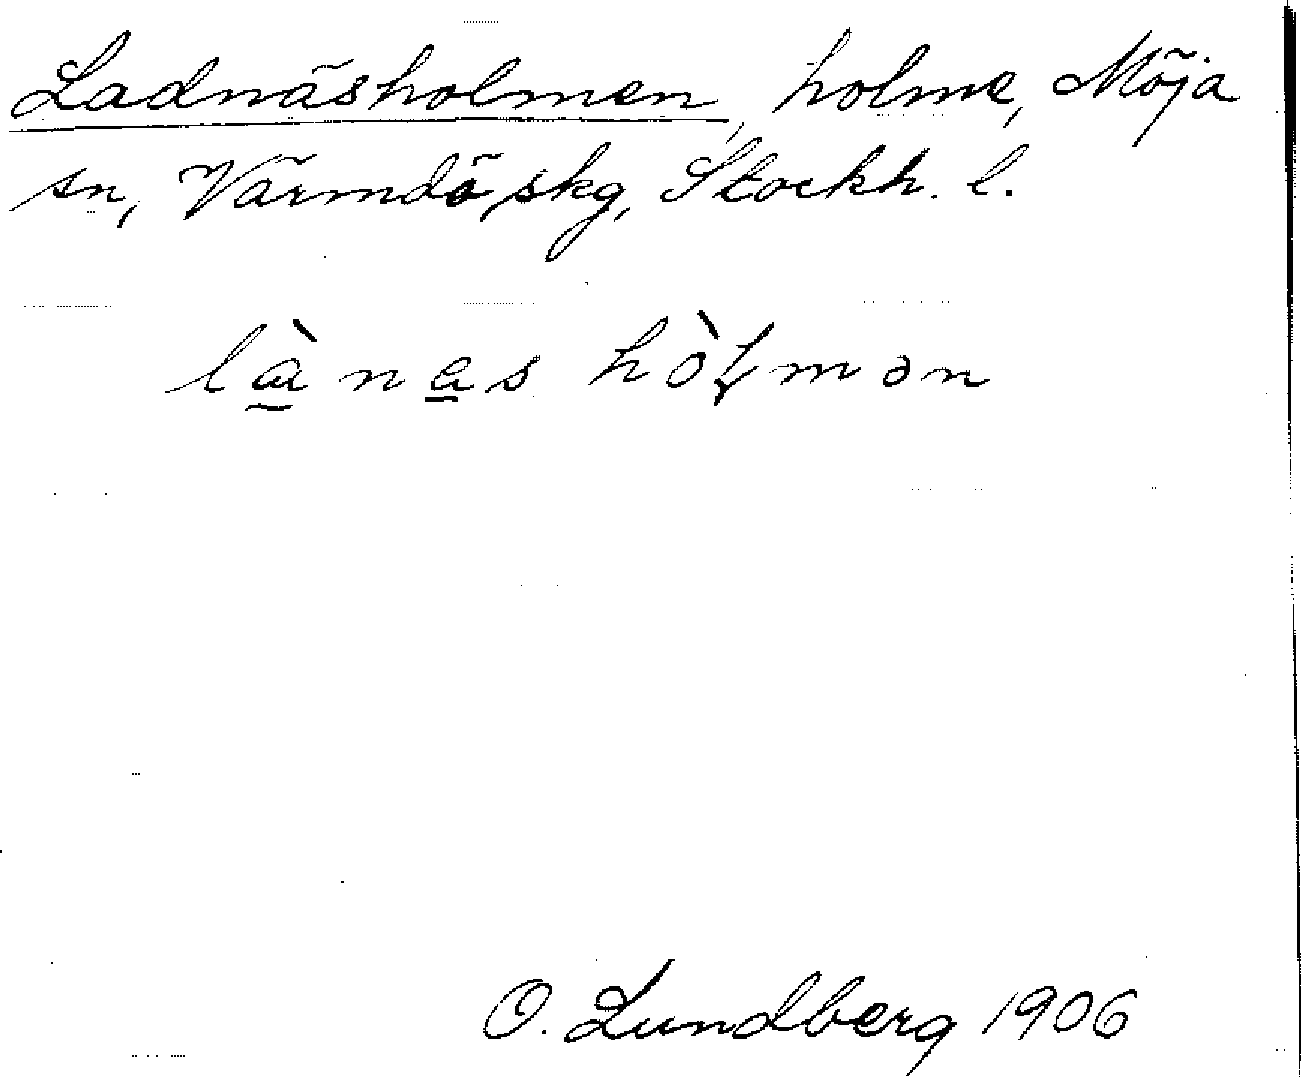 Ladnäsholmen, holme, Möja
sn, Värmdö skg, Stockh. l.
là̱na̱s hòɭmən
O. Lundberg 1906